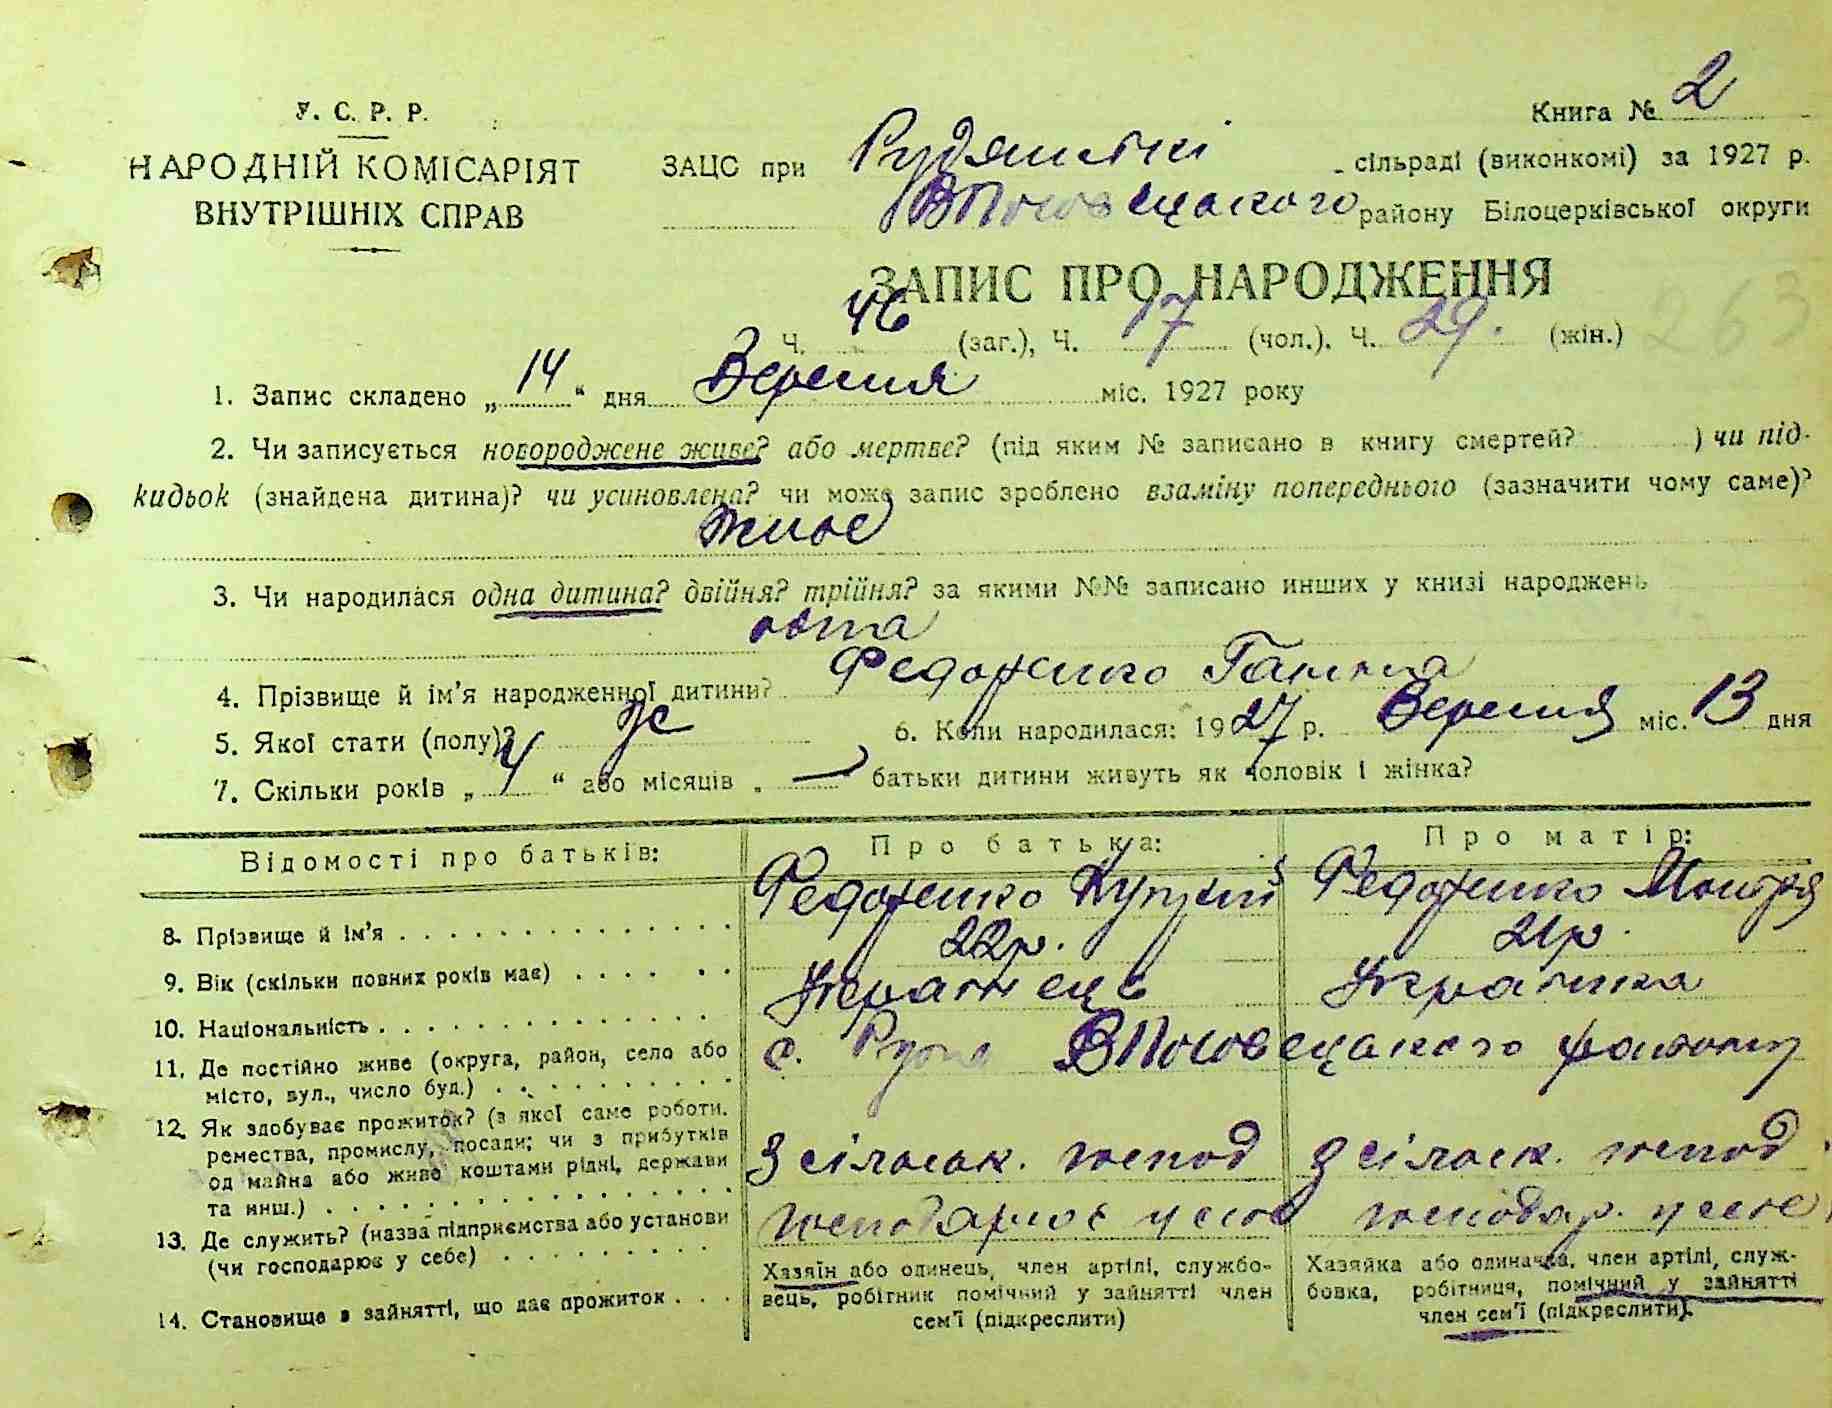 У. С. Р. Р.
НАРОДНІЙ КОМІСАРІЯТ
ВНУТРІШНІХ СПРАВ
Книга № 2
ЗАЦС при Рудянській сільраді (виконкомі) за 1927 р.
ВПоловецького району Білоцерківської округи
ЗАПИС ПРО НАРОДЖЕННЯ
263
Ч. 46 (заг.), Ч. 17 (чол.). Ч. 29. (жін.)
1. Запис складено „ 14 “ дня Вересня міс. 1927 року
2. Чи записується новороджене живе? або мертве? (під яким № записано в книгу смертей? ) чи під-
кидьок (знайдена дитина)? чи усиновлена? чи може запис зроблено взаміну попереднього (зазначити чому саме)?
живе
3. Чи народилася одна дитина? двійня? трійня? за якими №№ записано инших у книзі народжень
одна
4. Прізвище й ім’я народженної дитини? Федоренко Ганна
5. Якої стати (полу)? ж 6. Коли народилася: 1927 р. Вересня міс. 13 дня
7. Скільки років „ 4 “ або місяців „ — “ батьки дитини живуть як чоловік і жінка?
Відомості про батьків:
Про батька:
Про матір:
8. Прізвище й ім’я . . . . . . . . . . . . . .
Федоренко
Федоренко Мотря
9. Вік (скільки повних років має) . . . . . .
22р.
21р.
10. Національність . . . . . . . . . . . . .
Українець
Українка
11. Де постійно живе (округа, район, село або
місто, вул., число буд.) . . . . . . . . . .
с. Рудя ВПоловецького району
12. Як здобуває прожиток? (з якої саме роботи.
ремества, промислу, посади; чи з прибутків
од майна або живе коштами рідні, держави
та инш.) . . . . . . . . . . . . . . . . .
З сільськ. господ
З сільськ. господ.
13. Де служить? (назва підприємства або установи
(чи господарює у себе) . . . . . . . . .
господарює у себе
господар. у себе
14. Становище в зайнятті, що дає прожиток . . .
Хазяїн або одинець, член артілі, службо-
вець, робітник помічний у зайнятті член
сем’ї (підкреслити)
Хазяйка або одиначка, член артілі, служ-
бовка, робітниця, помічний у зайнятті
член сем’ї (підкреслити).